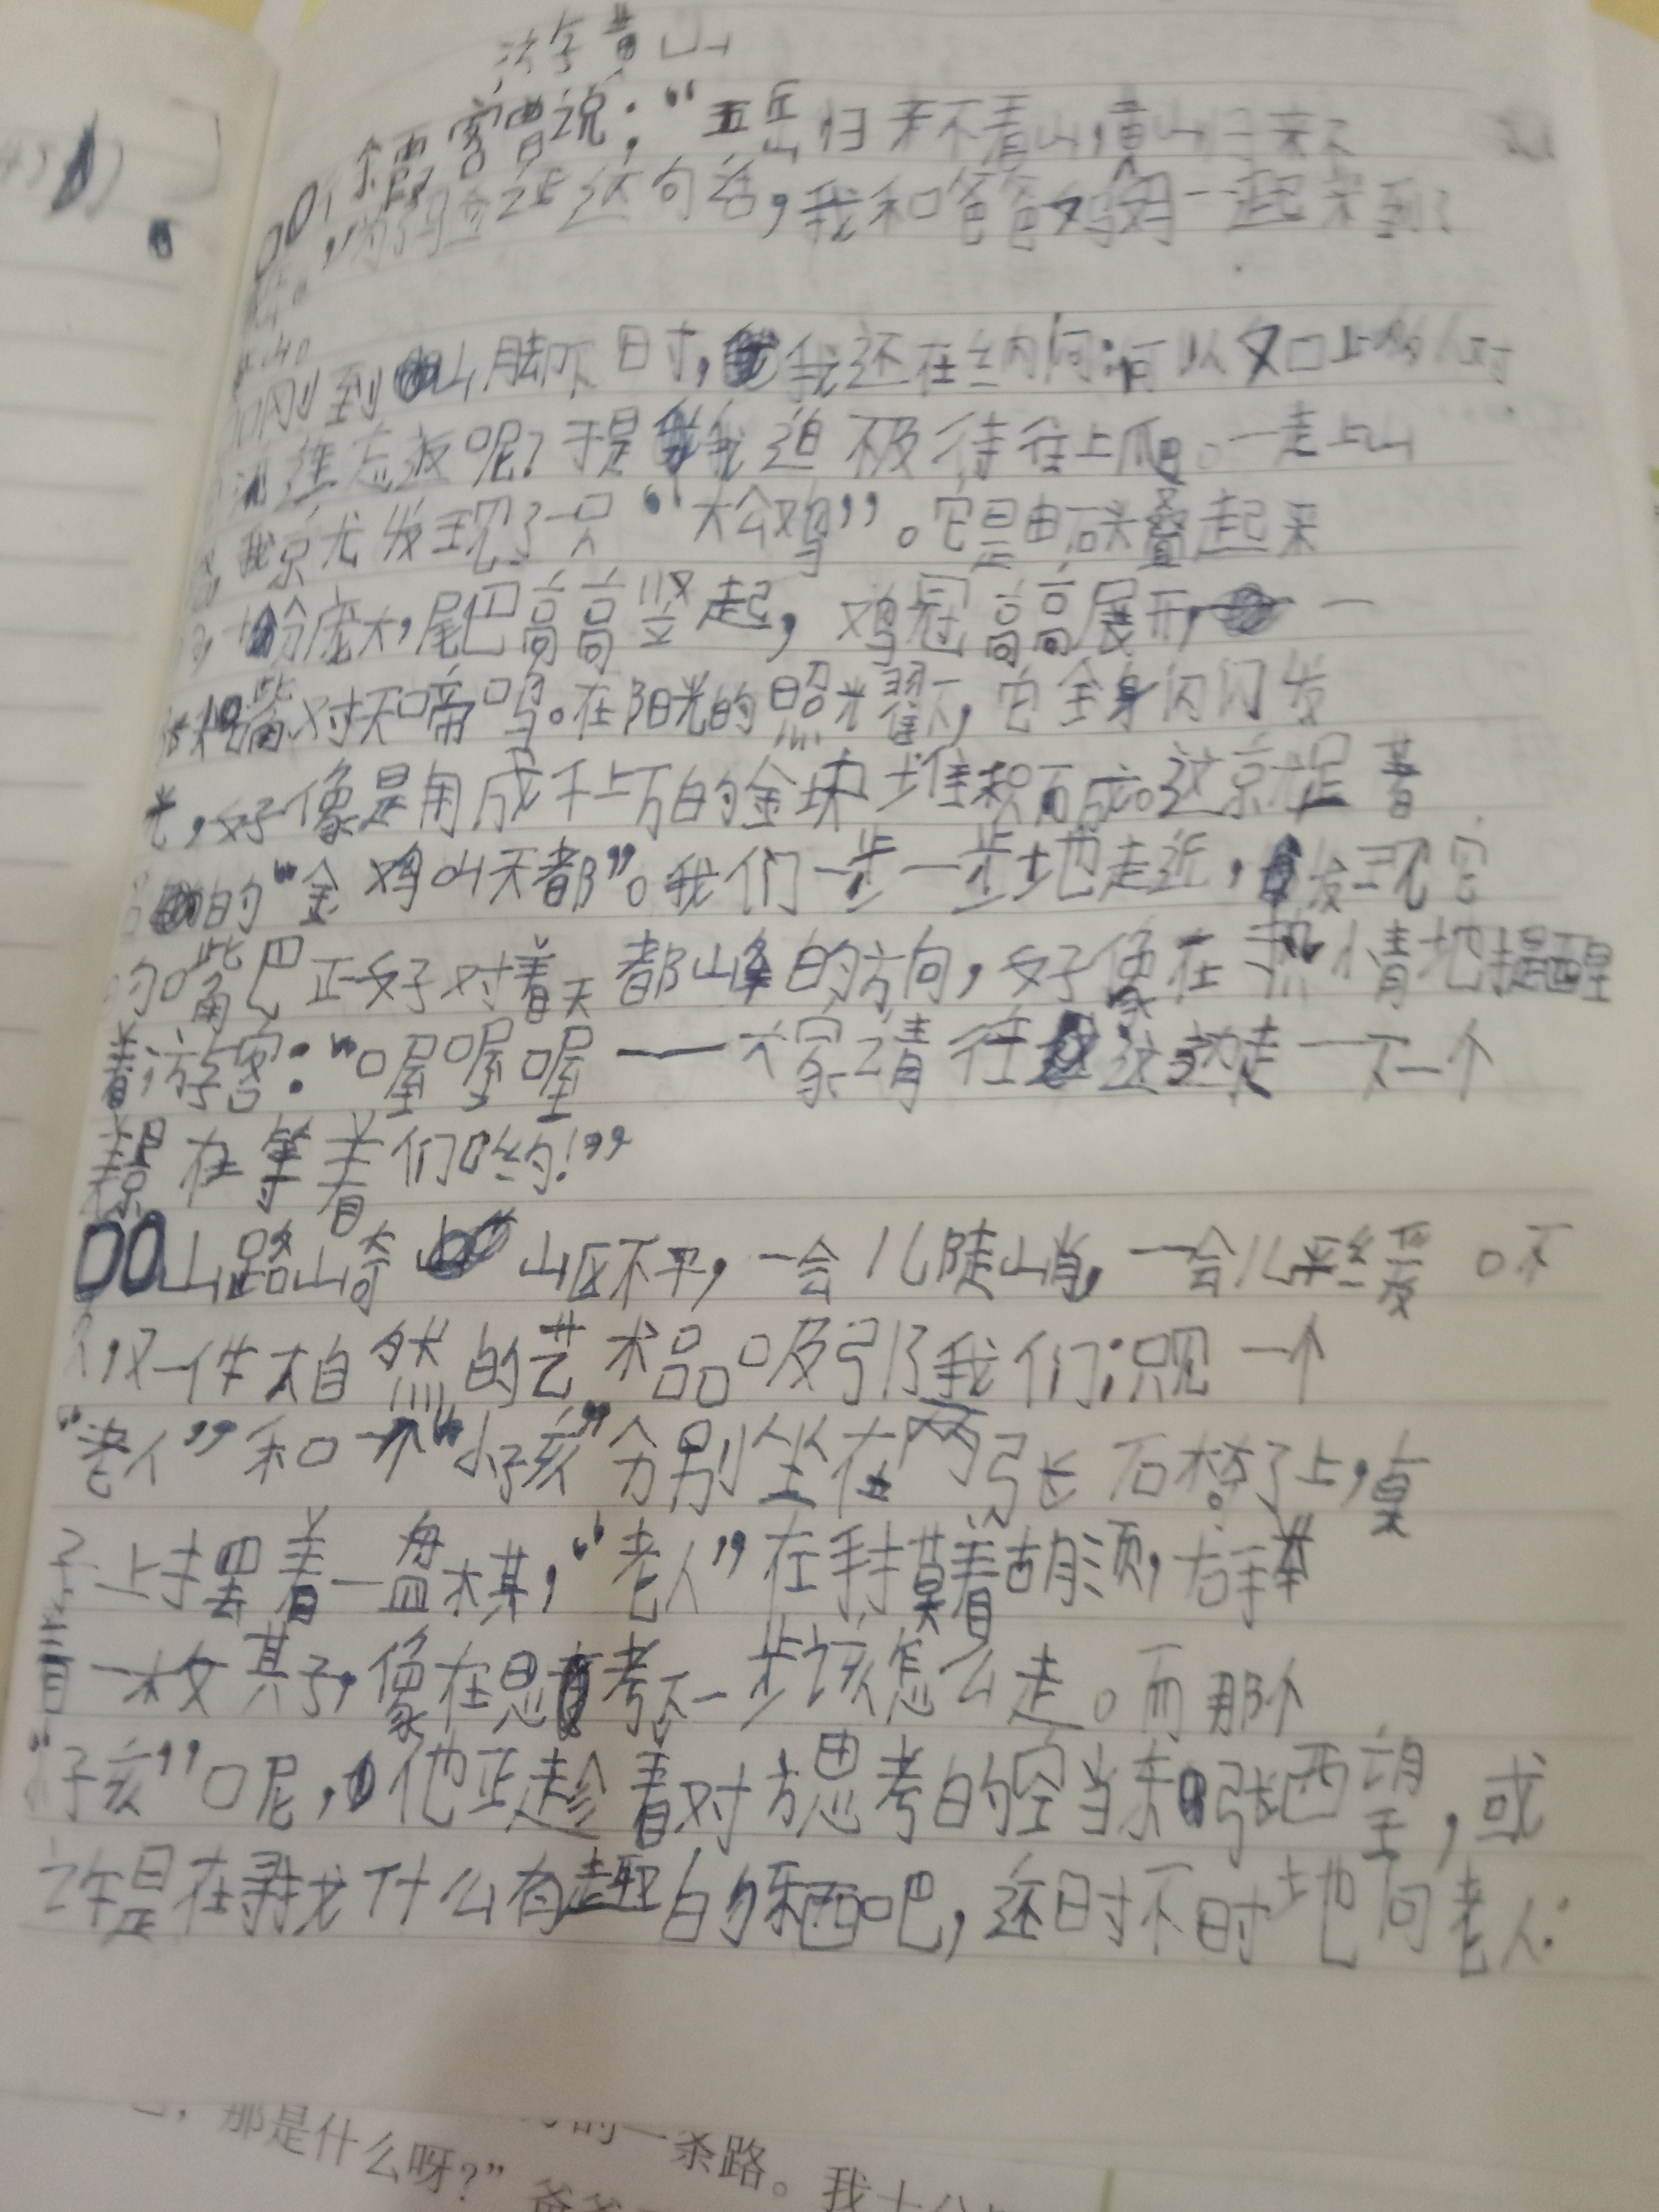 游黄山
徐霞客曾说：“五岳归来不看山，黄山归来不
，为了验证这句话，我和爸爸妈妈一起来到了
刚到山脚下时，我还在纳闷：何以又
连忘返呢？于是我迫不及待往上爬。一走上山
我就发现了一只“大公鸡”。它是由石头叠起来
，十分庞大，尾巴高高竖起，鸡冠高高展开，一
嘴对天啼鸣。在阳光的照耀下，它全身闪闪发
光，好像是用成千上万的金块堆积而成。这就是著
的“金鸡叫天都”。我们一步一步地走近，发现它
的嘴巴正好对着天都山峰的方向，好像在热情地提醒
着游客：“喔喔喔——大家请往这边走——下一个
景在等着们哟！”
山路崎岖不平，一会儿陡峭，一会儿平缓。不
久，又一件大自然的艺术品吸引了我们：只见一个
“老人”和一个“小孩”分别坐在两张长石椅子上，桌
子上摆着一盘棋，“老人”左手摸着胡须，右手举
着一枚其子，像在思考下一步该怎么走。而那个
“子孩”呢，他正趁着对方思考的空当东张西望，或
许是在寻找什么有趣的东西吧，还时不时地向老人
那是什么呀？”
的一条路。我十分